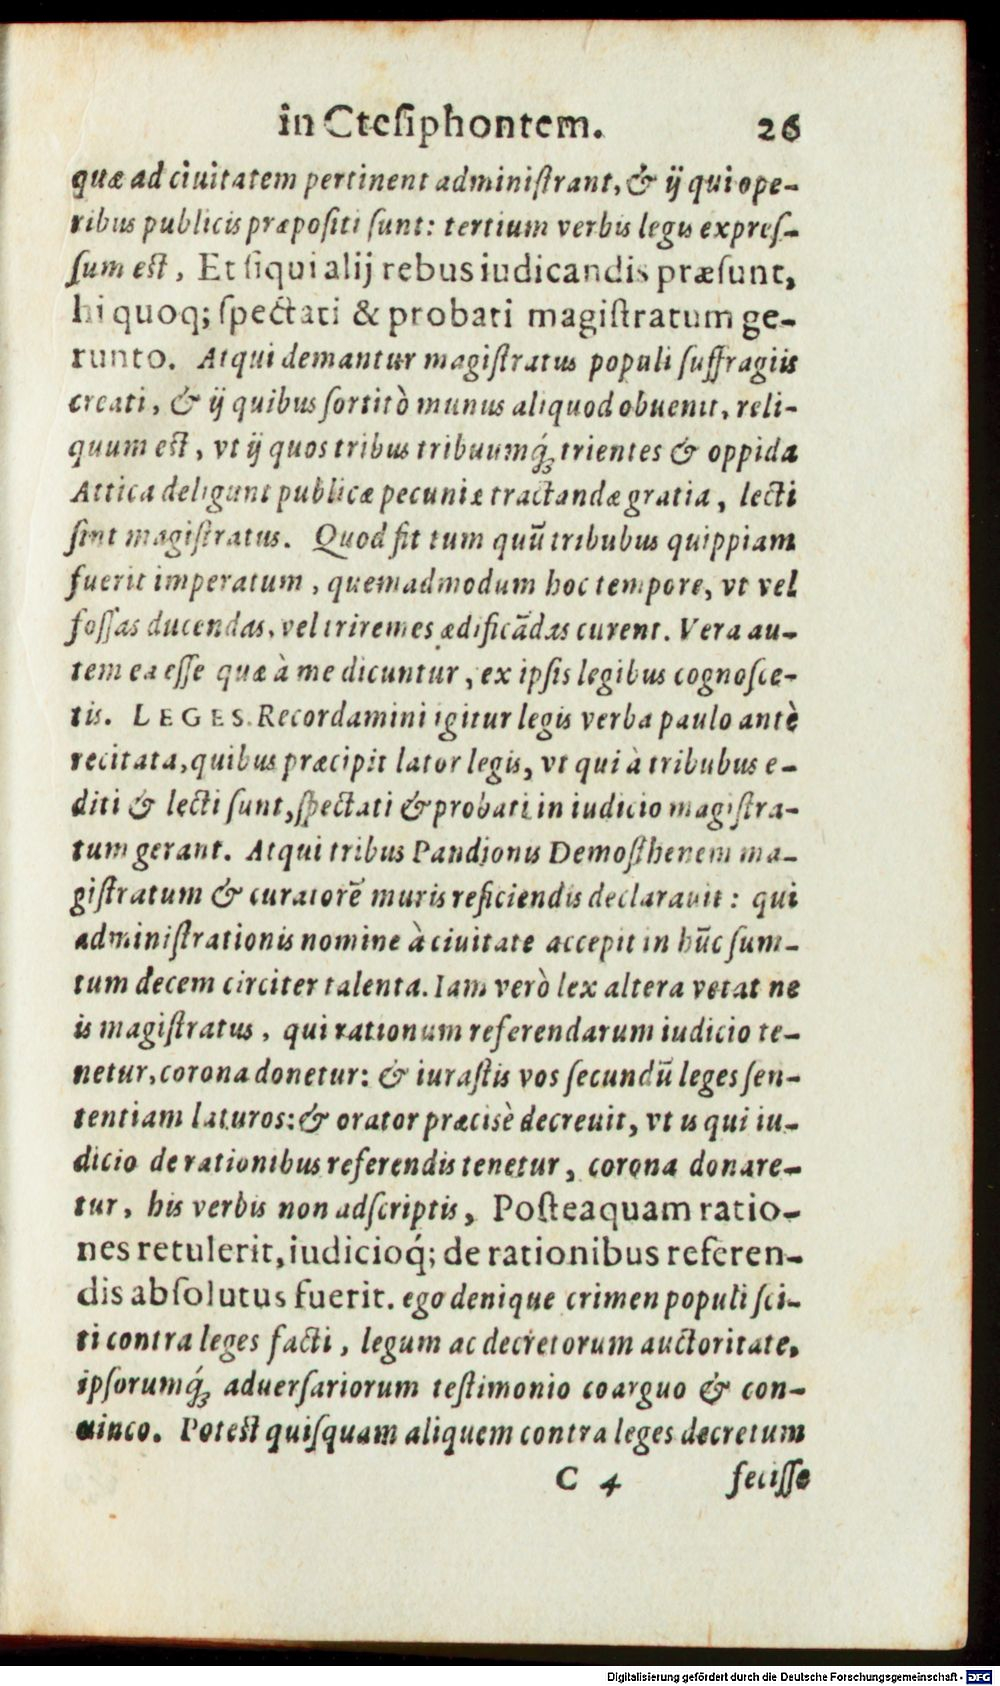 in Cteſiphontem. 26
quæ ad ciuitatem pertinent adminiſtrant, & ij qui ope-
ribus publicis præpoſiti ſunt: tertium verbis legis expreſ-
ſum eſt, Et ſiqui alij rebus iudicandis præſunt,
hi quoq; ſpectati & probati magiſtratum ge-
runto. Atqui demantur magiſtratus populi ſuffragiis
creati, & ij quibus ſortitò munus aliquod obuenit, reli-
quum eſt, vt ij quos tribus tribuumq́; trientes & oppida
Attica deligunt publicæ pecuniæ tractandæ gratia, lecti
ſint magiſtratus. Quod fit tum quũ tribubus quippiam
fuerit imperatum, quemadmodum hoc tempore, vt vel
foſſas ducendas, vel triremes ædificãdas curent. Vera au-
tem ea eſſe quæ à me dicuntur, ex ipſis legibus cognoſce-
tis. LEGES. Recordamini igitur legis verba paulo antè
recitata, quibus præcipit lator legis, vt qui à tribubus e-
diti & lecti ſunt, ſpectati & probati in iudicio magiſtra-
tum gerant. Atqui tribus Pandionis Demoſthenem ma-
giſtratum & curatorẽ muris reficiendis declarauit: qui
adminiſtrationis nomine à ciuitate accepit in hũc ſum-
tum decem circiter talenta. Iam verò lex altera vetat ne
is magiſtratus, qui rationum referendarum iudicio te-
netur, corona donetur: & iuraſtis vos ſecundũ leges ſen-
tentiam laturos: & orator præcisè decreuit, vt is qui iu-
dicio de rationibus referendis tenetur, corona donare-
tur, his verbis non adſcriptis, Poſteaquam ratio-
nes retulerit, iudicioq́; de rationibus referen-
dis abſolutus fuerit. ego denique crimen populi ſci-
ti contra leges facti, legum ac decretorum auctoritate,
ipſorumq́; aduerſariorum teſtimonio coarguo & con-
uinco. Poteſt quiſquam aliquem contra leges decretum
C 4 feciſſe
Digitalisierung gefördert durch die Deutsche Forschungsgemeinschaft - DFG